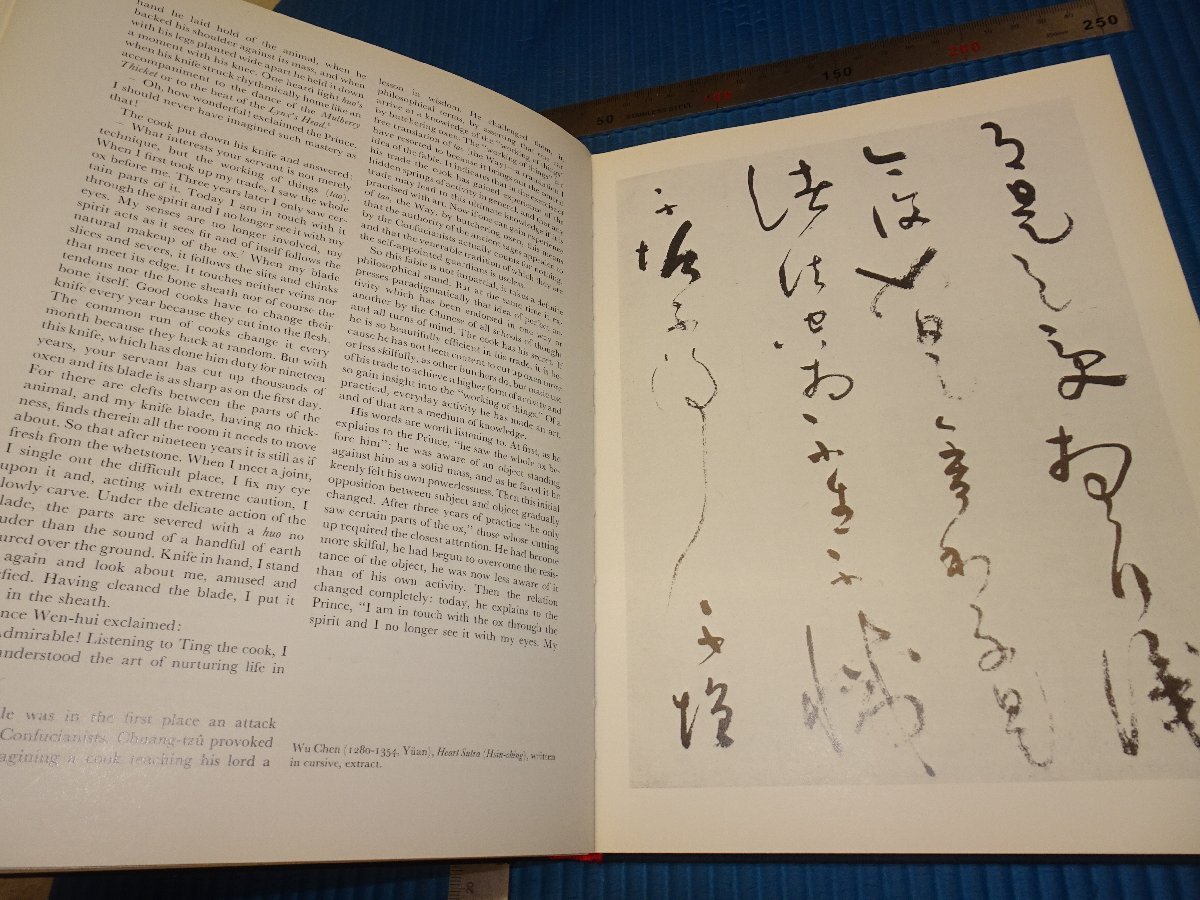 hand he laid hold of the animal, when he
backed his shoulder against its mass, and when
with his legs planted wide apart he held it down
a moment with his knee. One heard light huo's
when his knife struck rhythmically home like an
accompaniment to the dance of the Mulberry
Thicket or to the beat of the Lynx's Head.
– Oh, how wonderful! exclaimed the Prince.
I should never have imagined such mastery as
that!
The cook put down his knife and answered:
– What interests your servant is not merely
technique, but the working of things (tao).
When I first took up my trade, I saw the whole
ox before me. Three years later I only saw cer-
tain parts of it. Today I am in touch with it
through the spirit and I no longer see it with my
eyes. My senses are no longer involved, my
spirit acts as it sees fit and of itself follows the
natural makeup of the ox. When my blade
slices and severs, it follows the slits and chinks
that meet its edge. It touches neither veins nor
tendons nor the bone sheath nor of course the
bone itself. Good cooks have to change their
knife every year because they cut into the flesh.
The common run of cooks change it every
month because they hack at random. But with
this knife, which has done him duty for nineteen
years, your servant has cut up thousands of
oxen and its blade is as sharp as on the first day.
For there are clefts between the parts of the
animal, and my knife blade, having no thick-
ness, finds therein all the room it needs to move
about. So that after nineteen years it is still as if
fresh from the whetstone. When I meet a joint,
I single out the difficult place, I fix my eye
upon it and, acting with extreme caution, I
lowly carve. Under the delicate action of the
lade, the parts are severed with a huo no
uder than the sound of a handful of earth
ured over the ground. Knife in hand, I stand
again and look about me, amused and
fied. Having cleaned the blade, I put it
in the sheath.
nce Wen-hui exclaimed:
dmirable! Listening to Ting the cook, I
nderstood the art of nurturing life in
le was in the first place an attack
Confucianists. Chuang-tzû provoked
agining a cook teaching his lord a
lesson in wisdom. He challenged them, in
philosophical terms, by asserting that one can
arrive at a knowledge of the "working of things"
by butchering oxen. "The working of things" is a
free translation of tao, the Way,
have resorted to because it brings out the exact
idea of the fable. It indicates that in exercising
his trade the cook has gained experience of the
hidden springs of activity in general, and that any
trade may lead to this ultimate knowledge if it is
practised with art. Now if one can gain experience
of tao, the Way, by butchering oxen,
that the authority of the ancient sages appealed to
by the Confucianists actually counts for nothing,
and that the venerable tradition of which they are
the self-appointed guardians is useless.
So this fable is not impartial, it takes a definite
philosophical stand. But at the same time it ex-
presses paradigmatically that idea of perfect ac-
tivity which has been endorsed in one way or
another by the Chinese of all schools of thought
and all turns of mind. The cook has his secret. If
he is so beautifully efficient in his trade, it is be-
cause he has not been content to cut up oxen more
or less skilfully, as other butchers do, but made use
of his trade to achieve a higher form of activity and
so gain insight into the "working of things." Of a
practical, everyday activity he has made an art,
and of that art a medium of knowledge.
His words are worth listening to. At first, as he
explains to the Prince, "he saw the whole ox be-
fore him": he was aware of an object standing
against him as a solid mass, and as he faced it he
keenly felt his own powerlessness. Then this initial
opposition between subject and object gradually
changed. After three years of practice "he only
saw certain parts of the ox," those whose cutting
up required the closest attention. He had become
more skilful, he had begun to overcome the resis-
tance of the object, he was now less aware of it
than of his own activity. Then the relation
changed completely: today, he explains to the
Prince, "I am in touch with the ox through the
spirit and I no longer see it with my eyes. My
Wu Chen (1280-1354, Yüan), Heart Sutra (Hsin-ching), written
in cursive, extract.
即是色受想行識
亦復如是舍利子是
諸法空相不生不滅
不垢不淨不增
50 100 150 200 250
STAINLESS STEEL
20